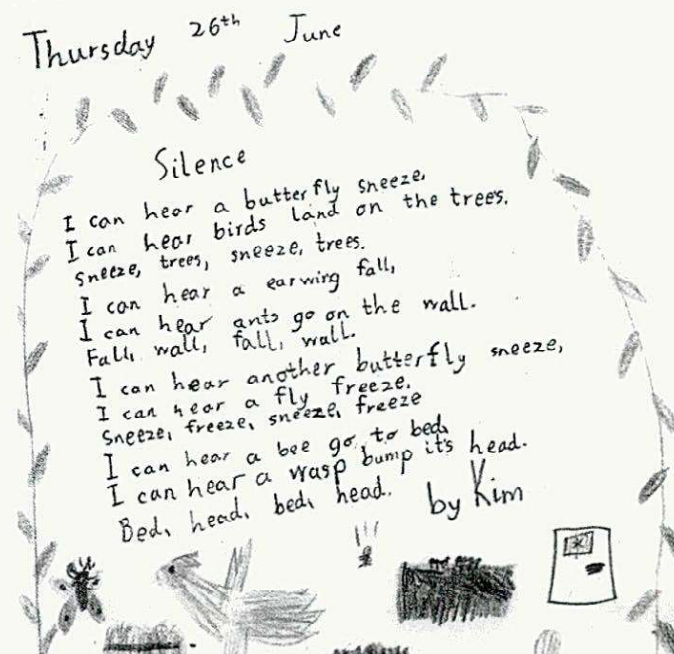 Thursday 26th June
Silence
I can hear a butterfly sneeze,
I can hear birds land on the trees.
Sneeze, trees, sneeze, trees.
I can hear a earwing fall,
I can hear ants go on the wall.
Fall, wall, fall, wall.
I can hear another butterfly sneeze,
I can hear a fly freeze.
Sneeze, freeze, sneeze, freeze
I can hear a bee go to bed,
I can hear a wasp bump it's head.
Bed, head, bed, head.
by Kim